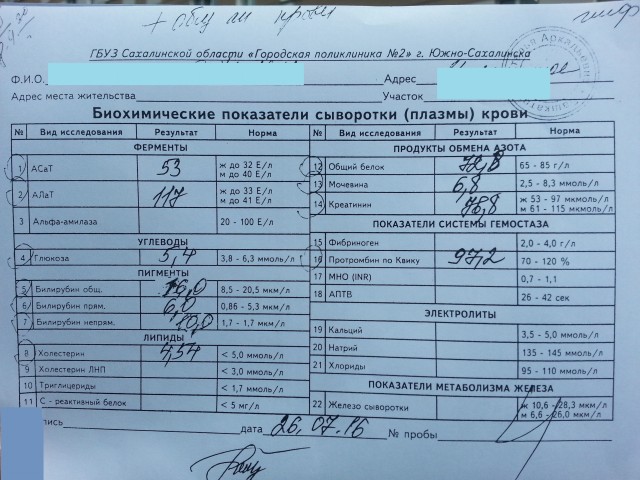 + общ ан крови
ГБУЗ Сахалинской области «Городская поликлиника №2» г. Южно-Сахалинска
Ф.И.О. Адрес
Адрес места жительства Участок
Биохимические показатели сыворотки (плазмы) крови
№ Вид исследования Результат Норма
ФЕРМЕНТЫ
1 АСаТ 53 ж до 32 Е/л
м до 40 Е/л
2 АЛаТ 117 ж до 33 Е/л
м до 41 Е/л
3 Альфа-амилаза 20 - 100 Е/л
УГЛЕВОДЫ
4 Глюкоза 5,4 3,8 - 6,3 ммоль/л
ПИГМЕНТЫ
5 Билирубин общ. 16,0 8,5 - 20,5 мкм/л
6 Билирубин прям. 6,0 0,86 - 5,3 мкм/л
7 Билирубин непрям. 10,0 1,7 - 1,7 мкм/л
ЛИПИДЫ
8 Холестерин 4,54 < 5,0 ммоль/л
9 Холестерин ЛНП < 3,0 ммоль/л
10 Триглицериды < 1,7 ммоль/л
11 С - реактивный белок < 5 мг/л
№ Вид исследования Результат Норма
ПРОДУКТЫ ОБМЕНА АЗОТА
12 Общий белок 72,8 65 - 85 г/л
13 Мочевина 6,8 2,5 - 8,3 ммоль/л
14 Креатинин 78,8 ж 53 - 97 мкмоль/л
м 61 - 115 мкмоль/л
ПОКАЗАТЕЛИ СИСТЕМЫ ГЕМОСТАЗА
15 Фибриноген 2,0 - 4,0 г/л
16 Протромбин по Квику 97,2 70 - 120 %
17 МНО (INR) 0,7 - 1,1
18 АПТВ 26 - 42 сек
ЭЛЕКТРОЛИТЫ
19 Кальций 3,5 - 5,0 ммоль/л
20 Натрий 135 - 145 ммоль/л
21 Хлориды 95 - 110 ммоль/л
ПОКАЗАТЕЛИ МЕТАБОЛИЗМА ЖЕЛЕЗА
22 Железо сыворотки ж 10,6 - 28,3 мкм/л
м 6,6 - 26,0 мкм/л
пись дата 26.07.16 № пробы